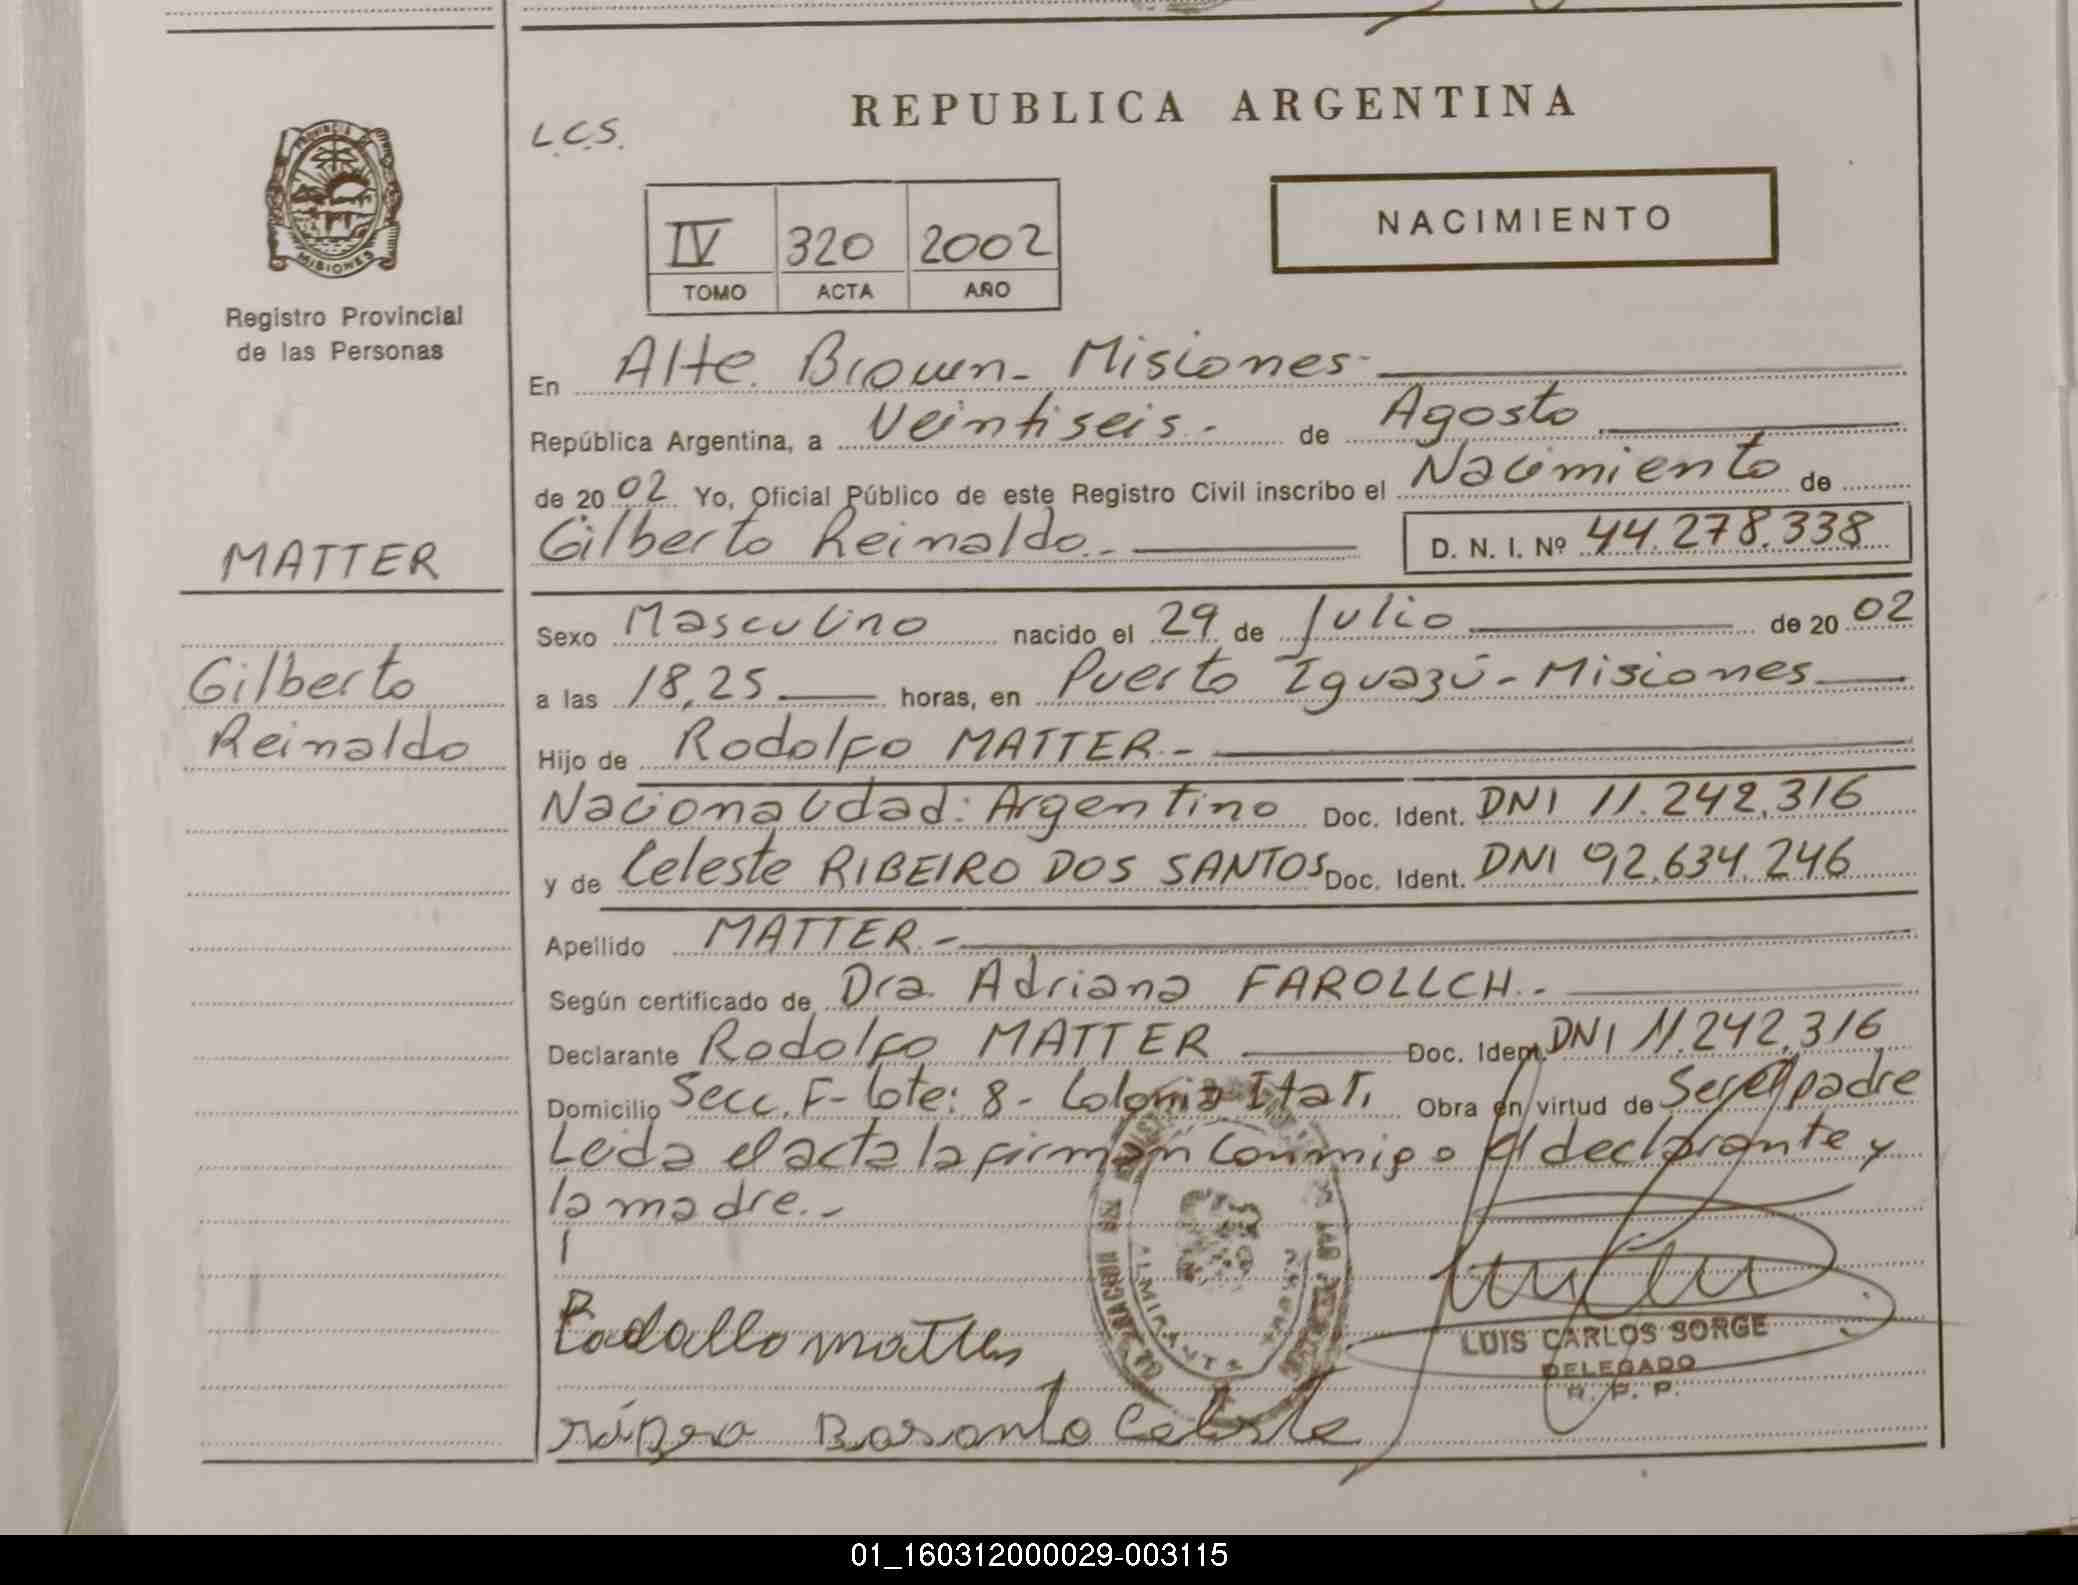 REPUBLICA ARGENTINA
L.C.S.
NACIMIENTO
IV 320 2002
TOMO ACTA AÑO
MISIONES
Registro Provincial
de las Personas
En Alte. Brown - Misiones
República Argentina, a Veintiseis.- de Agosto
de 2002 Yo, Oficial Público de este Registro Civil inscribo el Nacimiento de
Gilberto Reinaldo.- D. N. I. Nº 44.278.338
MATTER
Gilberto
Reinaldo
Sexo Masculino nacido el 29 de Julio de 2002
a las 18,25 horas, en Puerto Iguazú - Misiones
Hijo de Rodolfo MATTER.-
Nacionalidad: Argentino Doc. Ident. DNI 11.242.316
y de Celeste RIBEIRO DOS SANTOS Doc. Ident. DNI 92.634.246
Apellido MATTER.-
Según certificado de Dra. Adriana FAROLLCH.-
Declarante Rodolfo MATTER Doc. Ident. DNI 11.242.316
Domicilio Secc. F- Lote: 8 - Colonia Itati Obra en virtud de Ser el padre
Leida el acta la firman conmigo el declarante y
la madre.-
ALMIRANTE
LUIS CARLOS SORGE
DELEGADO
R. P. P.
Celeste
01_160312000029-003115